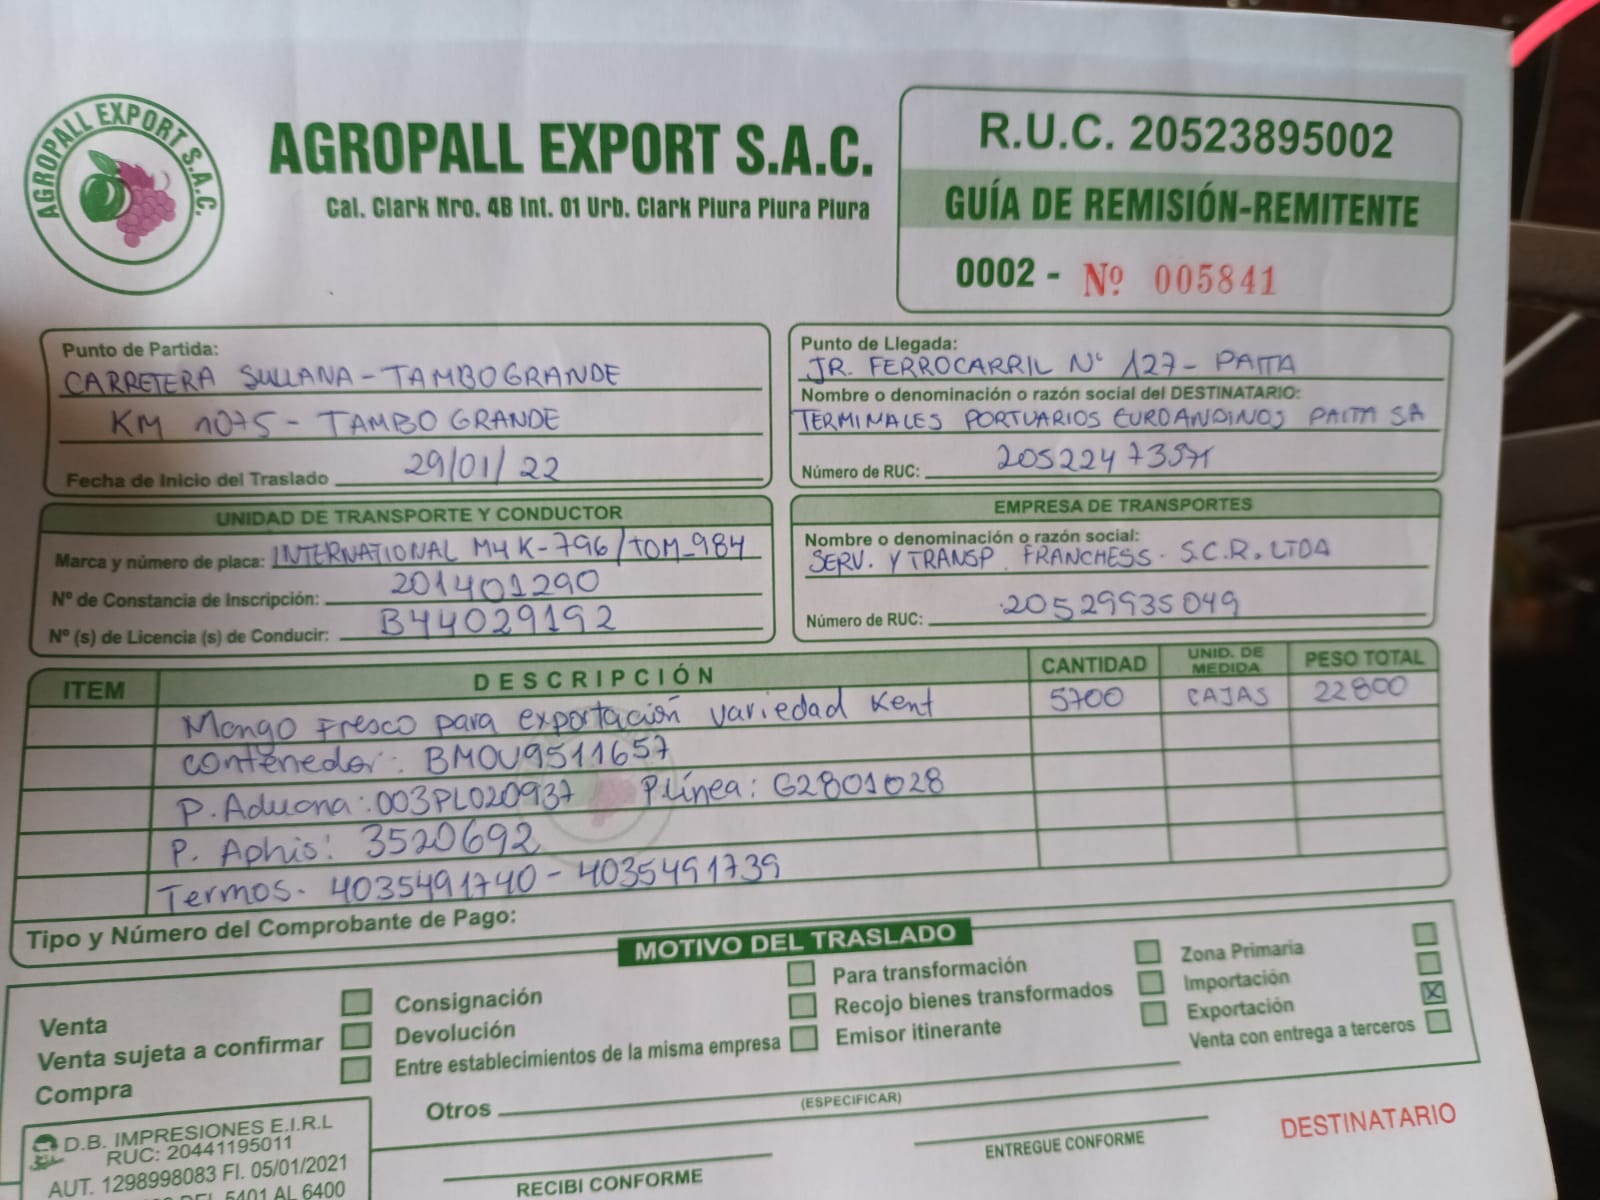 AGROPALL EXPORT S.A.C.
AGROPALL EXPORT S.A.C.
Cal. Clark Nro. 4B Int. 01 Urb. Clark Piura Piura Piura
R.U.C. 20523895002
GUÍA DE REMISIÓN-REMITENTE
0002 - Nº 005841
Punto de Partida:
CARRETERA SULLANA - TAMBOGRANDE
KM 1075 - TAMBO GRANDE
Fecha de Inicio del Traslado 29/01/22
Punto de Llegada:
JR. FERROCARRIL Nº 127 - PAITA
Nombre o denominación o razón social del DESTINATARIO:
TERMINALES PORTUARIOS EUROANDINOS PAITA SA
Número de RUC:
UNIDAD DE TRANSPORTE Y CONDUCTOR
Marca y número de placa: INTERNATIONAL M4K-796/TOM-984
Nº de Constancia de Inscripción: 201401290
Nº (s) de Licencia (s) de Conducir: B44029192
EMPRESA DE TRANSPORTES
Nombre o denominación o razón social:
SERV. Y TRANSP. FRANCHESS. S.C.R. LTDA
Número de RUC: 20529935049
ITEM DESCRIPCIÓN CANTIDAD UNID. DE MEDIDA PESO TOTAL
Mango Fresco para exportación variedad Kent 5700 CAJAS 22800
Contenedor: BMOU9511657
P. Aduana: 003PL020937 P.Línea: G2801028
P. Aphis: 3520692
Termos. 4035491740 - 4035491739
Tipo y Número del Comprobante de Pago:
MOTIVO DEL TRASLADO
Venta
Venta sujeta a confirmar
Compra
Consignación
Devolución
Entre establecimientos de la misma empresa
Para transformación
Recojo bienes transformados
Emisor itinerante
Zona Primaria
Importación
Exportación X
Venta con entrega a terceros
Otros
(ESPECIFICAR)
D.B. IMPRESIONES E.I.R.L
RUC: 20441195011
AUT. 1298998083 FI. 05/01/2021
DEL 5401 AL 6400
RECIBI CONFORME
ENTREGUE CONFORME
DESTINATARIO